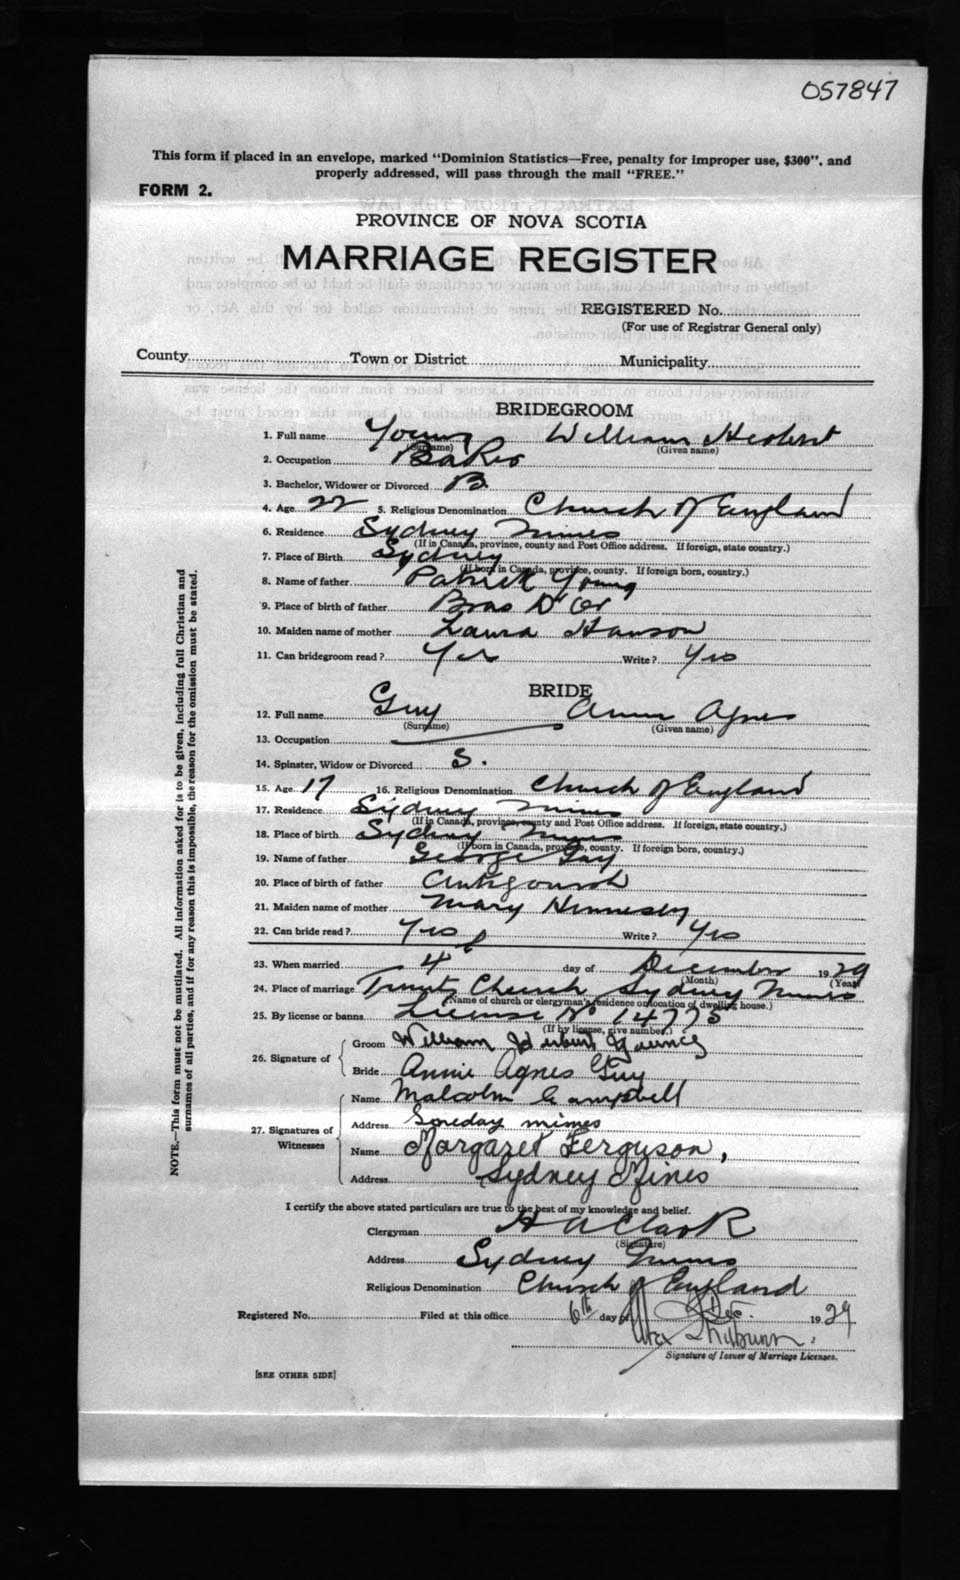 057847
This form if placed in an envelope, marked "Dominion Statistics—Free, penalty for improper use, $300", and
properly addressed, will pass through the mail "FREE."
FORM 2.
PROVINCE OF NOVA SCOTIA
MARRIAGE REGISTER
REGISTERED No.
(For use of Registrar General only)
County Town or District Municipality
BRIDEGROOM
1. Full name Young William Herbert
(Surname) (Given name)
2. Occupation Baker
3. Bachelor, Widower or Divorced B.
4. Age 22 5. Religious Denomination Church of England
6. Residence Sydney Mines
(If in Canada, province, county and Post Office address. If foreign, state country.)
7. Place of Birth Sydney
(If born in Canada, province, county. If foreign born, country.)
8. Name of father Patrick Young
9. Place of birth of father Bras D'Or
10. Maiden name of mother Laura Hanson
11. Can bridegroom read? Yes Write? Yes
BRIDE
12. Full name Guy Annie Agnes
(Surname) (Given name)
13. Occupation
14. Spinster, Widow or Divorced S.
15. Age 17 16. Religious Denomination Church of England
17. Residence Sydney Mines
(If in Canada, province, county and Post Office address. If foreign, state country.)
18. Place of birth Sydney Mines
(If born in Canada, province, county. If foreign born, country.)
19. Name of father George Guy
20. Place of birth of father Antigonish
21. Maiden name of mother Mary Hennesey
22. Can bride read? Yes Write? Yes
23. When married 4 day of December 1929
(Month) (Year)
24. Place of marriage Trinity Church Sydney Mines
(Name of church or clergyman's residence or location of dwelling house.)
25. By license or banns License No 14775
(If by license, give number.)
26. Signature of
Groom William Herbert Young
Bride Annie Agnes Guy
27. Signatures of Witnesses
Name Malcolm Campbell
Address mines
Name Margaret Ferguson,
Address Sydney Mines
I certify the above stated particulars are true to the best of my knowledge and belief.
Clergyman H A Clark
(Signature)
Address Sydney Mines
Religious Denomination Church of England
Registered No. Filed at this office 6th day of Dec. 1929
Signature of Issuer of Marriage Licenses.
[SEE OTHER SIDE]
NOTE.—This form must not be mutilated. All information asked for is to be given, including full Christian and
surnames of all parties, and if for any reason this is impossible, the reason for the omission must be stated.